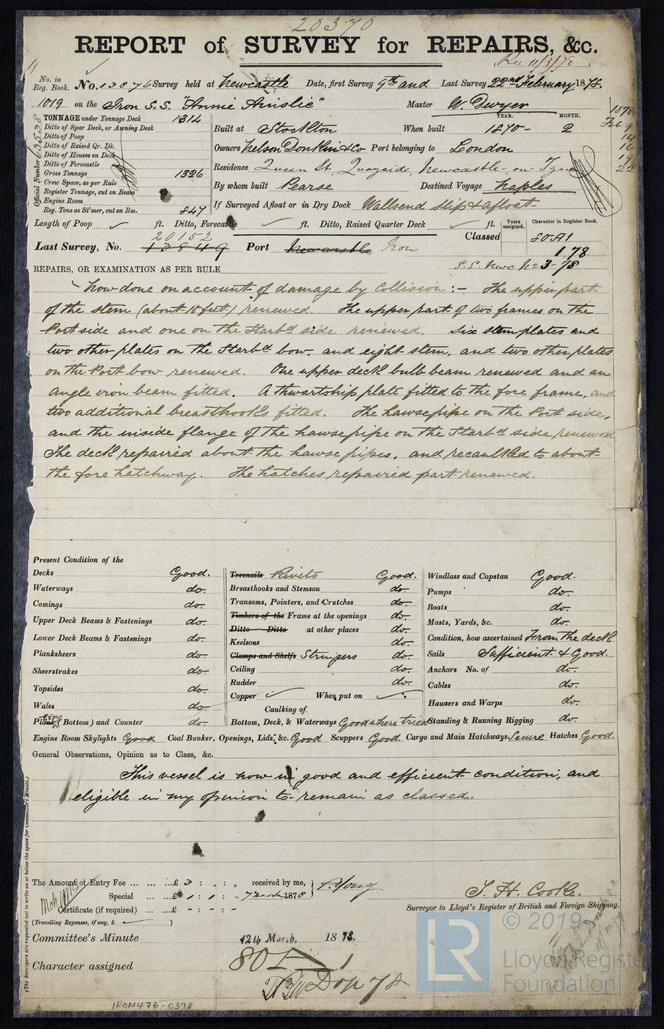 20370
REPORT of SURVEY for REPAIRS, &c.
Rec 11/3/78
No. in Reg. Book. No. 13876 Survey held at Newcastle Date, first Survey 9th and Last Survey 22nd February 1878
1019 on the Iron S.S. "Annie Ainslie" Master W. Dwyer
TONNAGE under Tonnage Deck 1314
Ditto of Spar Deck, or Awning Deck
Ditto of Poop
Ditto of Raised Qr. Dk.
Ditto of Houses on Deck
Ditto of Forecastle
Gross Tonnage 1326
Crew Space, as per Rule
Register Tonnage, cut on Beam
Engine Room
Reg. Tons as St'mer, cut on Bm. 847
Official Number 63528
YEAR. MONTH.
Built at Stockton When built 1870 - 2
Owners Nelson Donkin & Co Port belonging to London
Residence Queen St. Quayside, Newcastle-on-Tyne
By whom built Pearse Destined Voyage Naples
If Surveyed Afloat or in Dry Dock Wallsend Slip & afloat
1878
Feb 9
Length of Poop ft. Ditto, Forecastle ft. Ditto, Raised Quarter Deck ft.
Years assigned. Character in Register Book.
20152
Last Survey, No. 13849 Port Newcastle Iron Classed 80A1
1.78
S.S. Nwc No 3-78
REPAIRS, OR EXAMINATION AS PER RULE
Now done on account of damage by Collision:- The upper part
of the stem (about 15 feet) renewed. The upper part of two frames on the
Port side and one on the Starbd side renewed. Six stem plates and
two other plates on the Starbd bow, and eight stem, and two other plates
on the Port bow renewed. One upper deck bulb beam renewed and an
angle iron beam fitted. A thwartship plate fitted to the fore frame, and
two additional breasthooks fitted. The hawsepipe on the Port side,
and the inside flange of the hawsepipe on the Starbd side, renewed
The deck repaired about the hawse pipes, and recaulked to about
the fore hatchway. The hatches repaired part renewed.
Present Condition of the
Decks Good.
Waterways do.
Comings do.
Upper Deck Beams & Fastenings do.
Lower Deck Beams & Fastenings do.
Planksheers do.
Sheerstrakes do.
Topsides do.
Wales do.
Plank (Bottom) and Counter do.
Treenails Rivits Good.
Breasthooks and Stemson do.
Transoms, Pointers, and Crutches do.
Timbers of the Frame at the openings do.
Ditto Ditto at other places do.
Keelsons do.
Clamps and Shelfs Stringers do.
Ceiling do.
Rudder do.
Copper When put on
Caulking of
Bottom, Deck, & Waterways Good where tried
Windlass and Capstan Good.
Pumps do.
Boats do.
Masts, Yards, &c. do.
Condition, how ascertained From the deck
Sails Sufficient & Good.
Anchors No. of do.
Cables do.
Hawsers and Warps do.
Standing & Running Rigging do.
Engine Room Skylights Good Coal Bunker, Openings, Lids, &c. Good Scuppers Good Cargo and Main Hatchways Secure Hatches Good
General Observations, Opinion as to Class, &c.
This vessel is now in good and efficient condition, and
eligible in my opinion to remain as classed.
The Amount of Entry Fee £ received by me,
Special £ 1 : 1 : 1878 P. Young
Certificate (if required)
(Travelling Expenses, if any, £ )
T. H. Cooke.
Surveyor to Lloyd's Register of British and Foreign Shipping.
Committee's Minute 12th March. 1878.
Character assigned 80 A 1
IRON476-0398
© 2019
LR
Lloyd's Register
Foundation